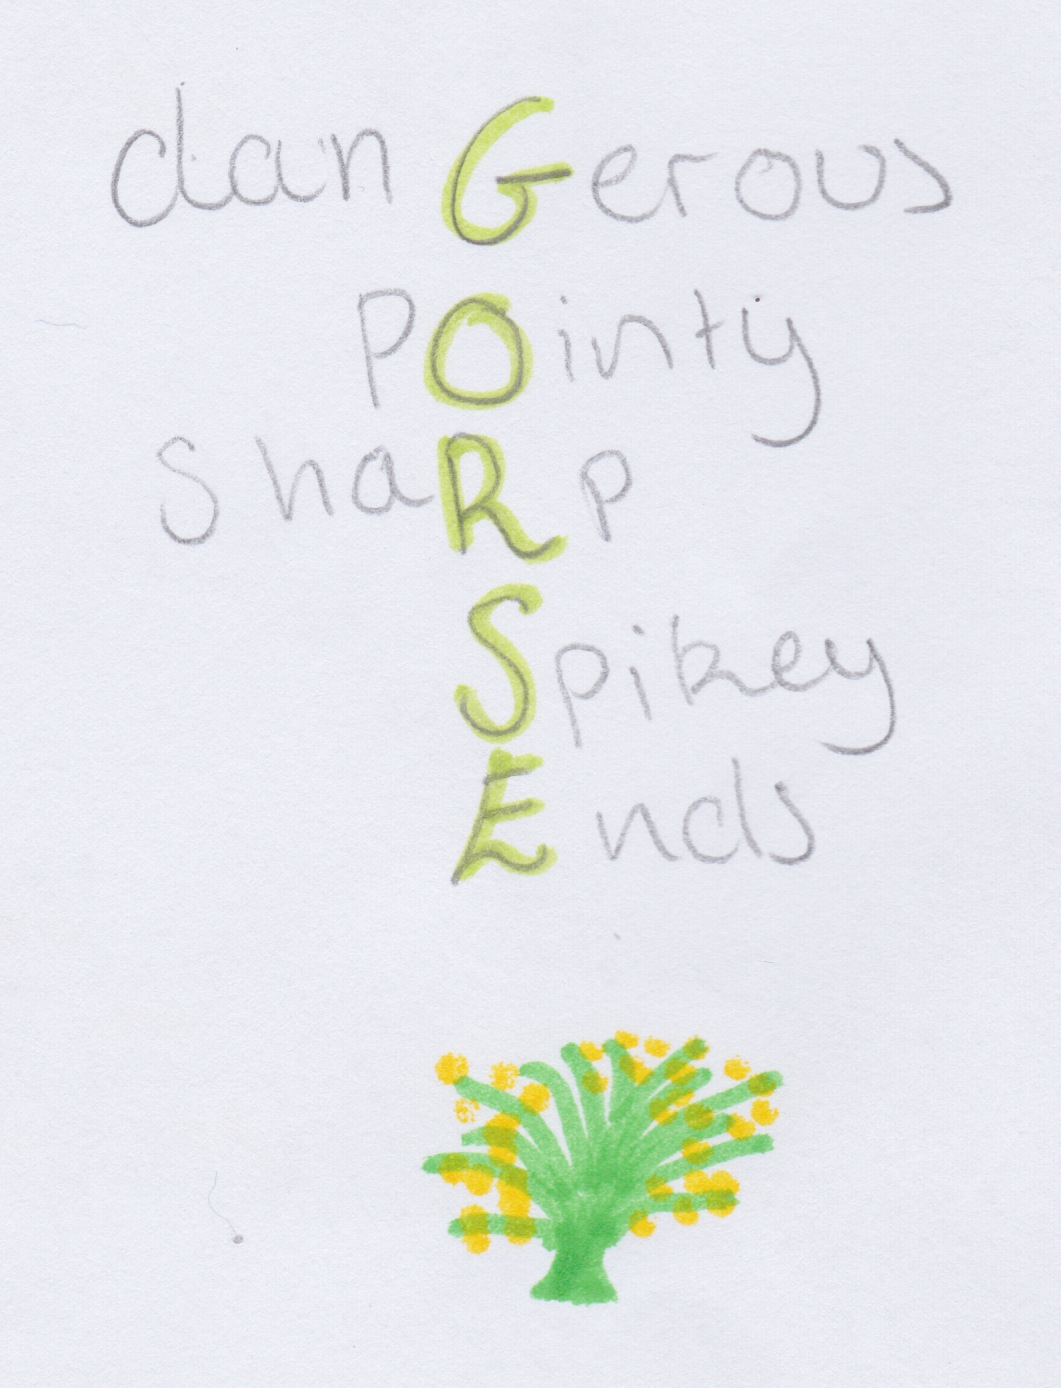 danGerous
pOinty
shaRp
Spikey
Ends